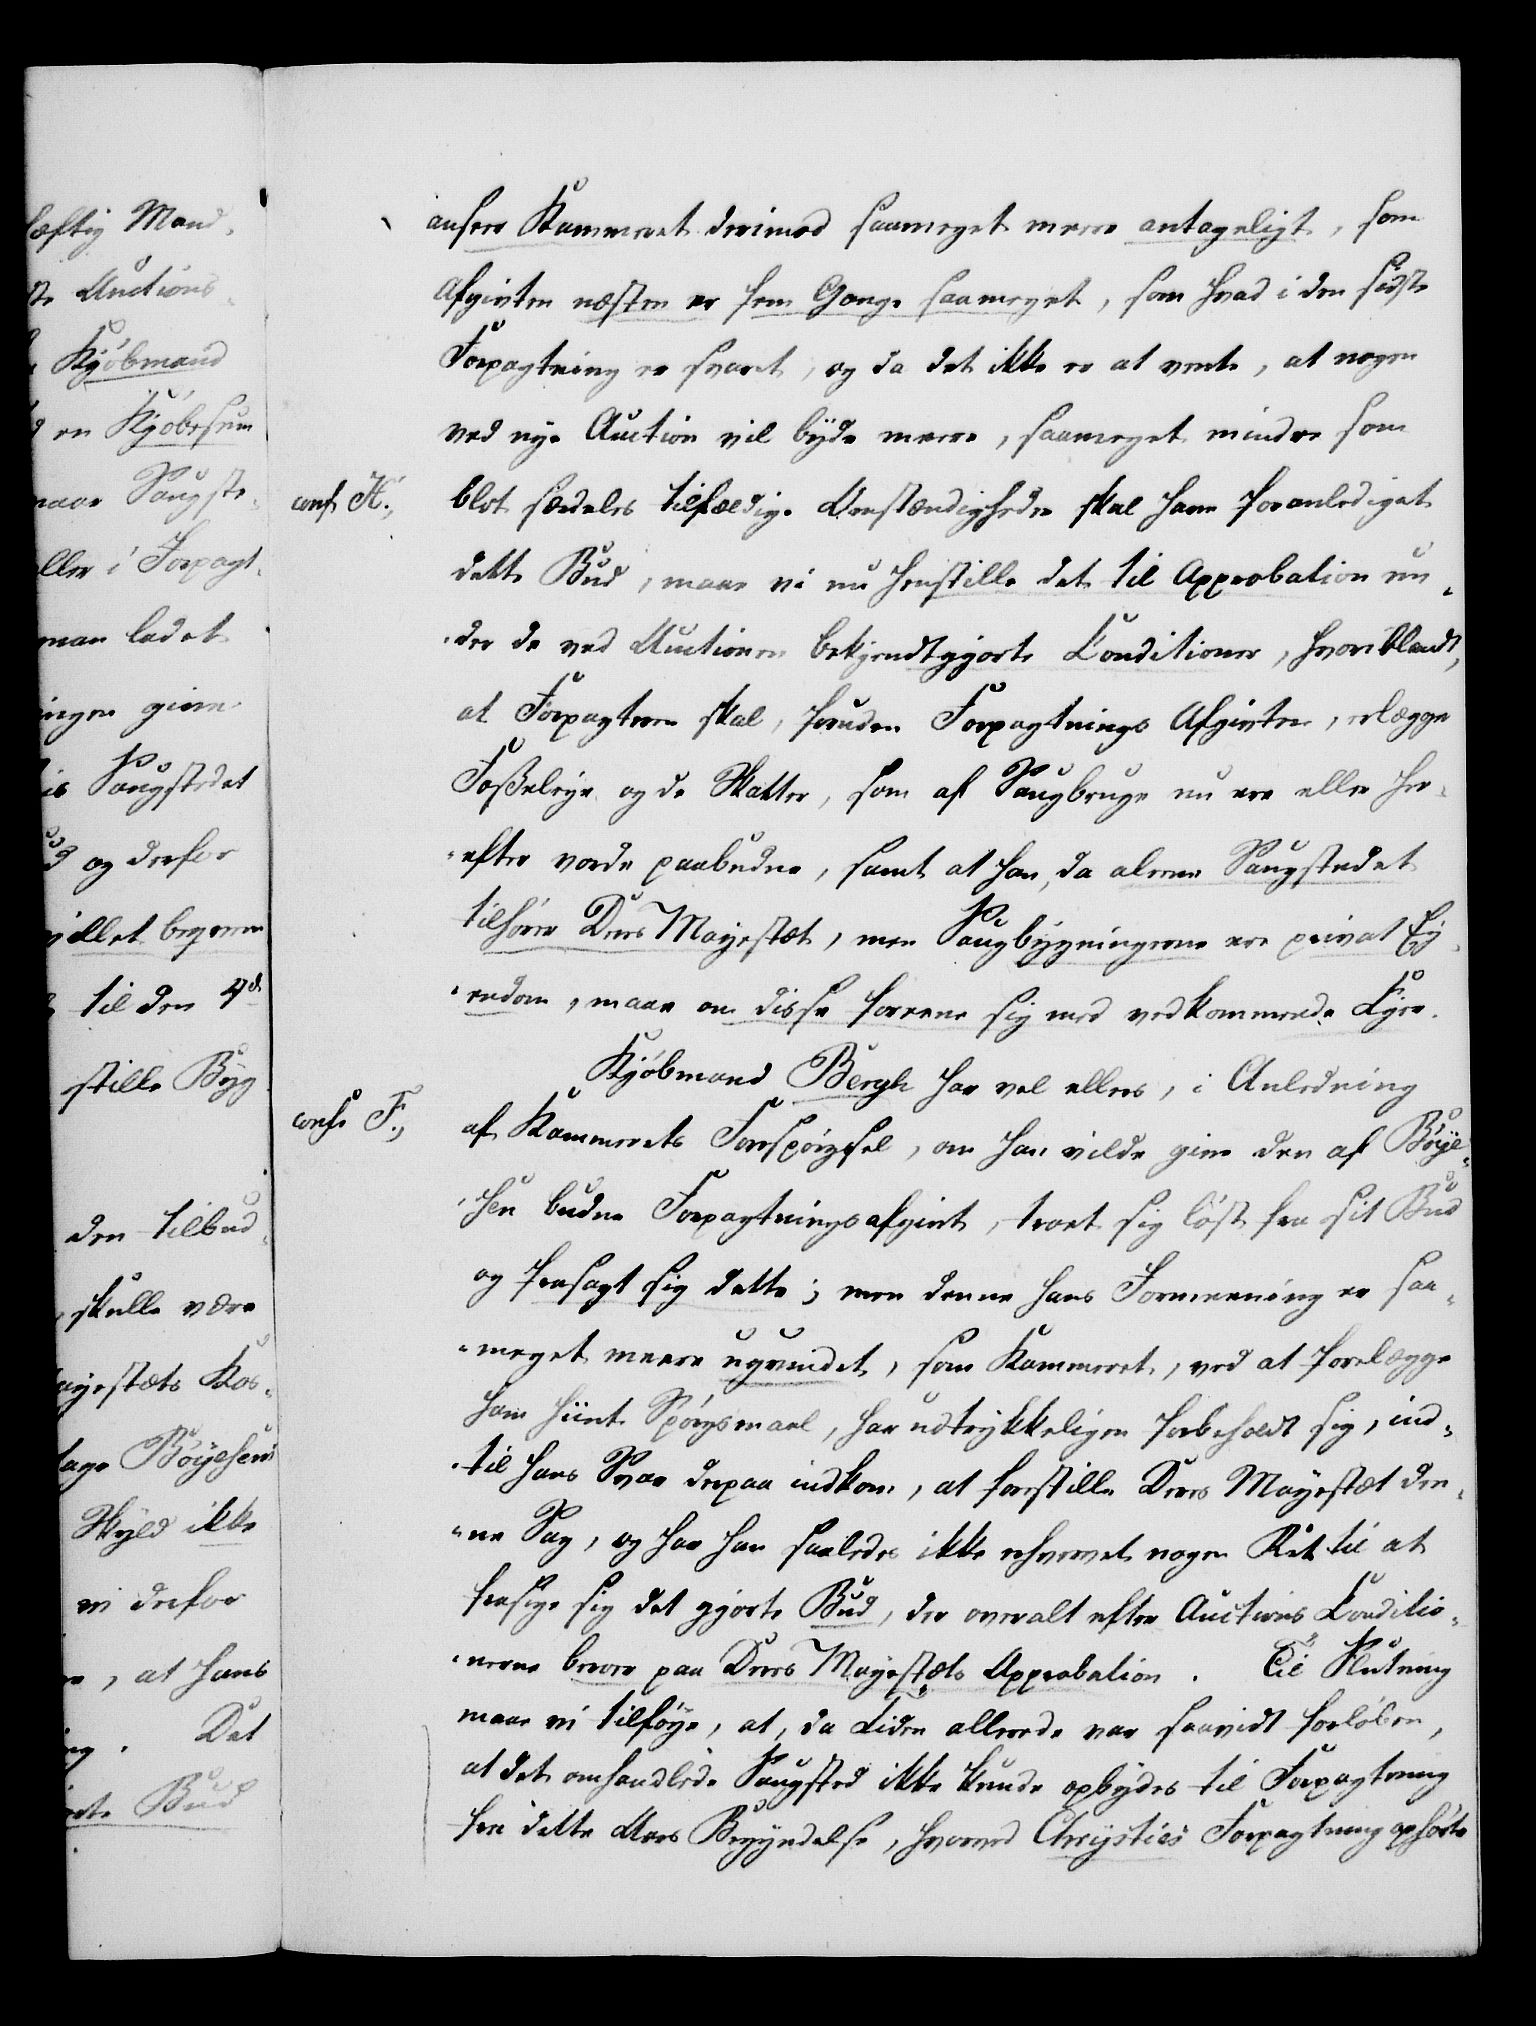 læftig Mand,
ste Auctions-
Kjøbmand
en Kjøbesum
maae Saugste-
ller i Forpagt-
man ladet
ingen give
Saugstedet
og derfor
villet begiere
til den 4de
stille Byg
den tilbud-
skulle være
Mayestæts Kas-
tage Böyesens
Skyld ikke
vi derfor
, at hans
Det
Bud
anseer Kammeret derimod saameget meere antageligt, som
Afgivten næsten er fem Gange saameget, som hvad i den sidste
Forpagtning er svaret, og da det ikke er at vente, at nogen
ved nye Auction vil byde meere, saameget mindre som
conf. H., blot særdeles tilfældige Omstændigheder skal have foranlediget
dette Bud, maae vi nu henstille det til Approbation un-
-der de ved Auctionen bekjendtgjorte Conditioner, hvoriblandt,
at Forpagteren skal, foruden Forpagtnings Afgivten, erlægge
Fosseleye og de Skatter, som af Saugbruge nu ere eller her-
-efter vorde paabudne, samt at han, da alene Saugstedet
tilhører Deres Mayestæt, men Saugbygningerne ere privat Ej-
-endom, maae om disse foreene sig med vedkommende Ejer.
Kjøbmand Bergh har vel ellers, i Anledning
conf. F., af Kammerets Forespørgsel, om han vilde give den af Böye-
-sen budne Forpagtningsafgivt, troet sig løst fra sit Bud
og frasagt sig dette; men denne hans Formeening er saa-
-meget meere ugrundet, som Kammeret, ved at forelægge
ham hiint Spørgsmaal, har udtrykkeligen forbeholdt sig, ind-
-til hans Svar derpaa indkom, at forestille Deres Mayestæt den-
-ne Sag, og har han saaledes ikke erhvervet nogen Ret til at
frasige sig det gjorte Bud, der overalt efter Auctions Conditio-
-nerne beroer paa Deres Mayestæts Approbation. Til Slutning
maae vi tilføye, at, da Tiden allerede var saavidt forløben,
at det omhandlede Saugsted ikke kunde opbydes til Forpagtning
fra dette Aars Begyndelse, hvorved Chrysties Forpagtning ophørte